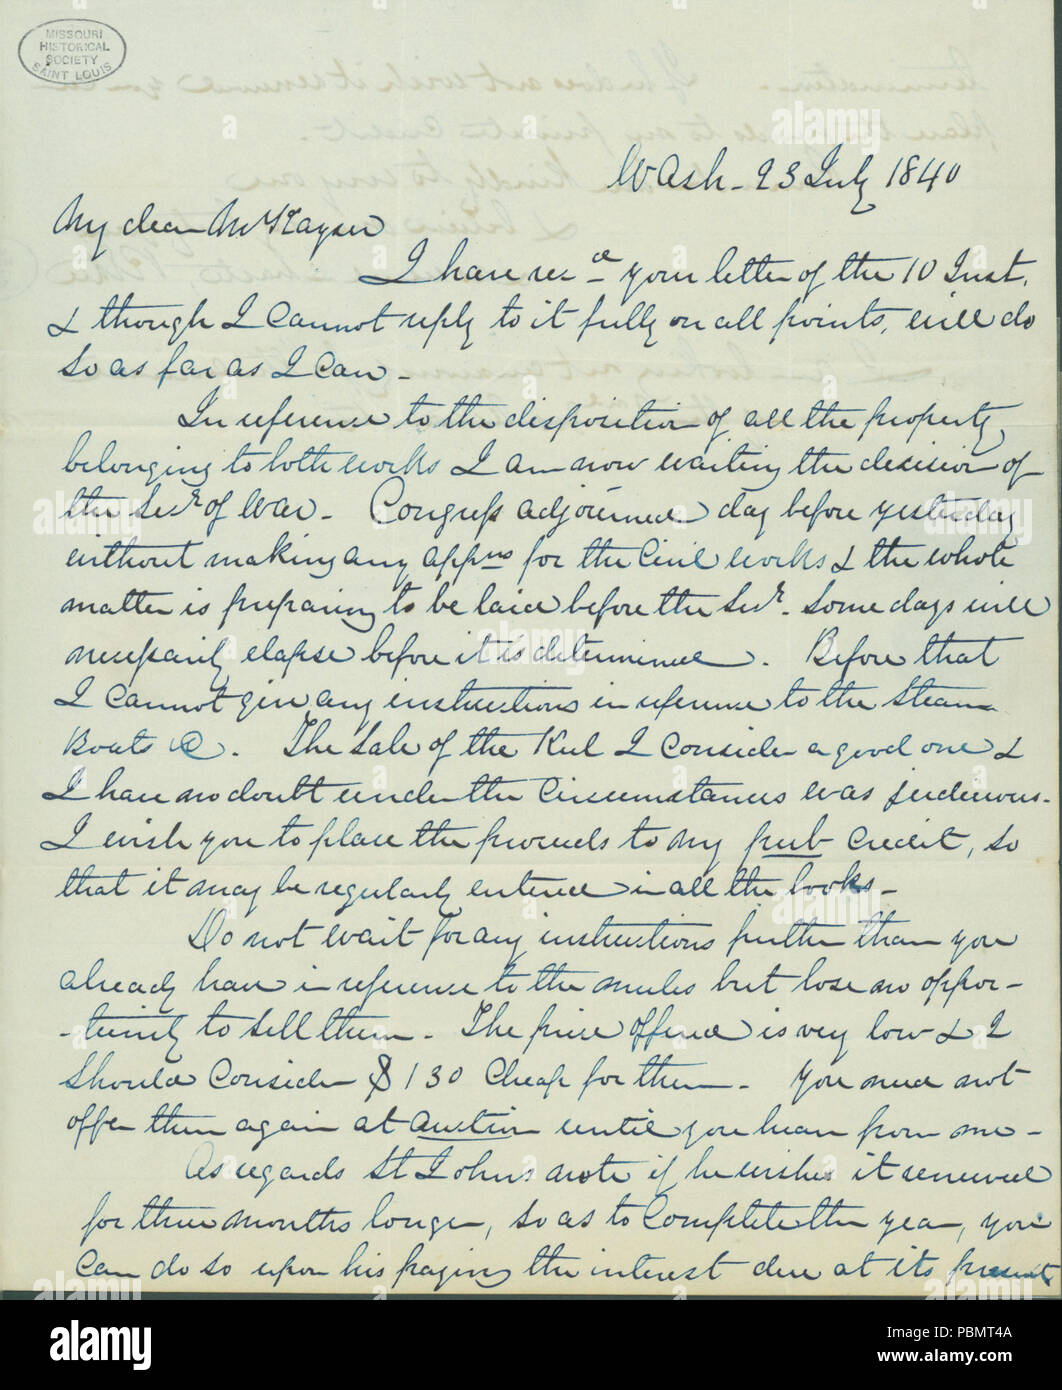 MISSOURI
HISTORICAL
SOCIETY
SAINT LOUIS
Wash - 23 July 1840
My dear Mr Kayser
I have recd your letter of the 10 Inst.
& though I cannot reply to it fully on all points, will do
so as far as I can -
In reference to the disposition of all the property
belonging to both works I am now waiting the decision of
the Secr of War - Congress adjourned day before yesterday
without making any appns for the Civil works & the whole
matter is preparing to be laid before the Secr. Some days will
necessarily elapse before it is determined. Before that
I cannot give any instructions in reference to the Steam
Boats &c. The Sale of the Keel I consider a good one &
I have no doubt under the circumstances was judicious.
I wish you to place the proceeds to my pub credit, so
that it may be regularly entered in all the books -
Do not wait for any instructions further than you
already have in reference to the mules but lose no oppor-
-tunity to sell them - The price offered is very low & I
should consider $130 cheap for them - You need not
offer them again at auction until you hear from me -
As regards St Johns note if he wishes it renewed
for three months longer, so as to complete the year, you
can do so upon his paying the interest due at its present
alamy
Image ID: PBMT4A
www.alamy.com